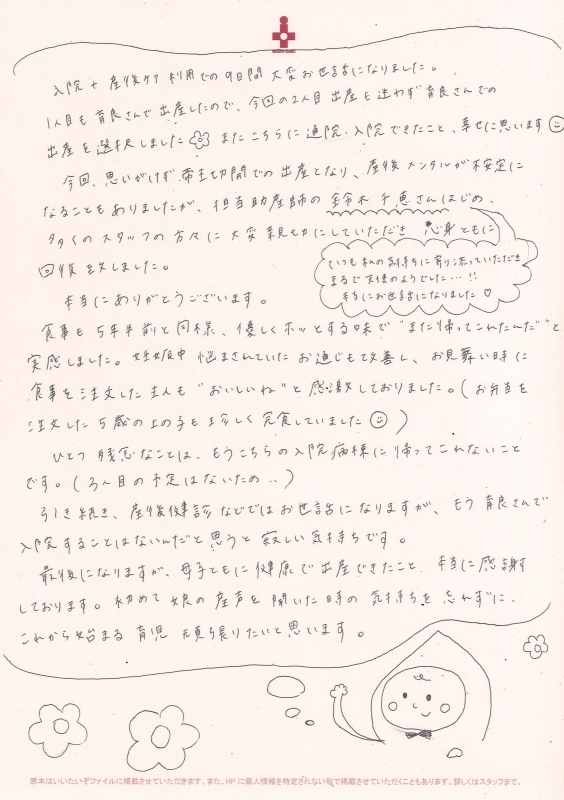 入院+産後ケア利用での9日間大変お世話になりました。
1人目も育良さんで出産したので、今回の2人目出産も迷わず育良さんでの
出産を選択しました またこちらに通院・入院できたこと、幸せに思います
今回、思いがけず帝王切開での出産となり、産後メンタルが不安定に
なることもありましたが、担当助産師の鈴木千恵さんはじめ、
多くのスタッフの方々に大変親切にしていただき 心身ともに
回復を致しました。
いつも私の気持ちに寄り添っていただき
まるで天使のようでした…!!
本当にお世話になりました♡
本当にありがとうございます。
食事も5年半前と同様、優しくホッとする味で"また帰ってこれたんだ"と
実感しました。妊娠中悩まされていたお通じも改善し、お見舞い時に
食事を注文した主人も"おいしいね"と感激しておりました。(お弁当を
注文した5歳の上の子も珍しく完食していました )
ひとつ残念なことは、もうこちらの入院病棟に帰ってこれないこと
です。(3人目の予定はないため‥)
引き続き、産後健診などではお世話になりますが、もう育良さんで
入院することはないんだと思うと寂しい気持ちです。
最後になりますが、母子ともに健康で出産できたこと、本当に感謝
しております。初めて娘の産声を聞いた時の気持ちを忘れずに、
これから始まる育児頑張りたいと思います。
原本はいいたいぞファイルに掲載させていただきます。また、HPに個人情報を特定されない形で掲載させていただくこともあります。詳しくはスタッフまで。